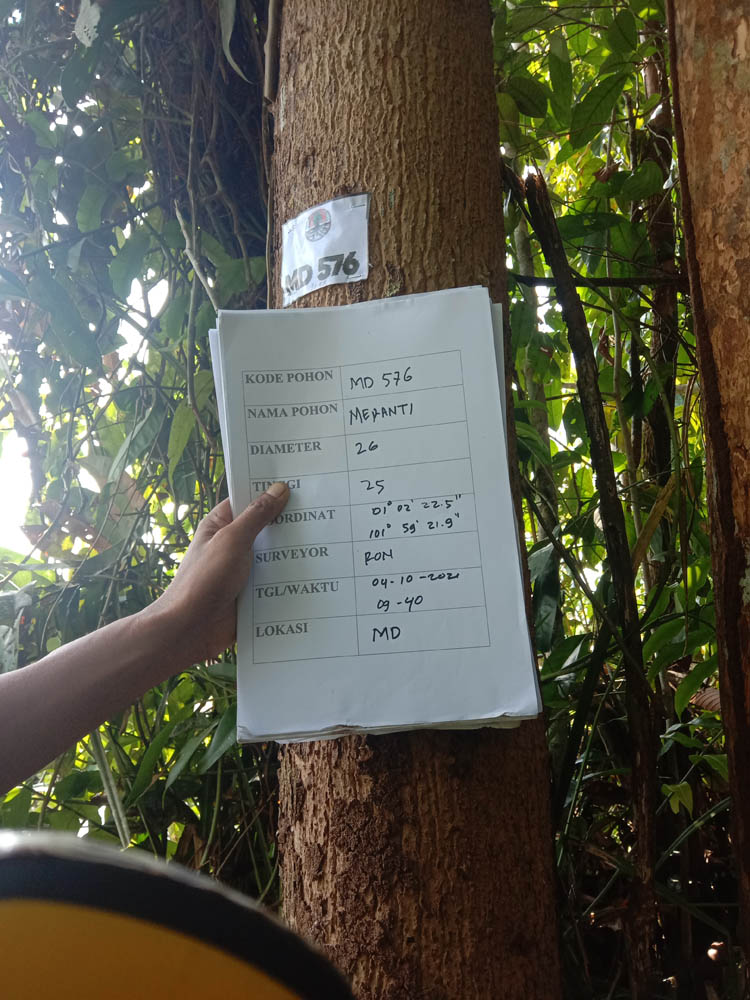 MD 576
KODE POHON MD 576
NAMA POHON MERANTI
DIAMETER 26
TINGGI 25
KOORDINAT 01° 02' 22.5"
101° 59' 21.9"
SURVEYOR RON
TGL/WAKTU 04-10-2021
09-40
LOKASI MD